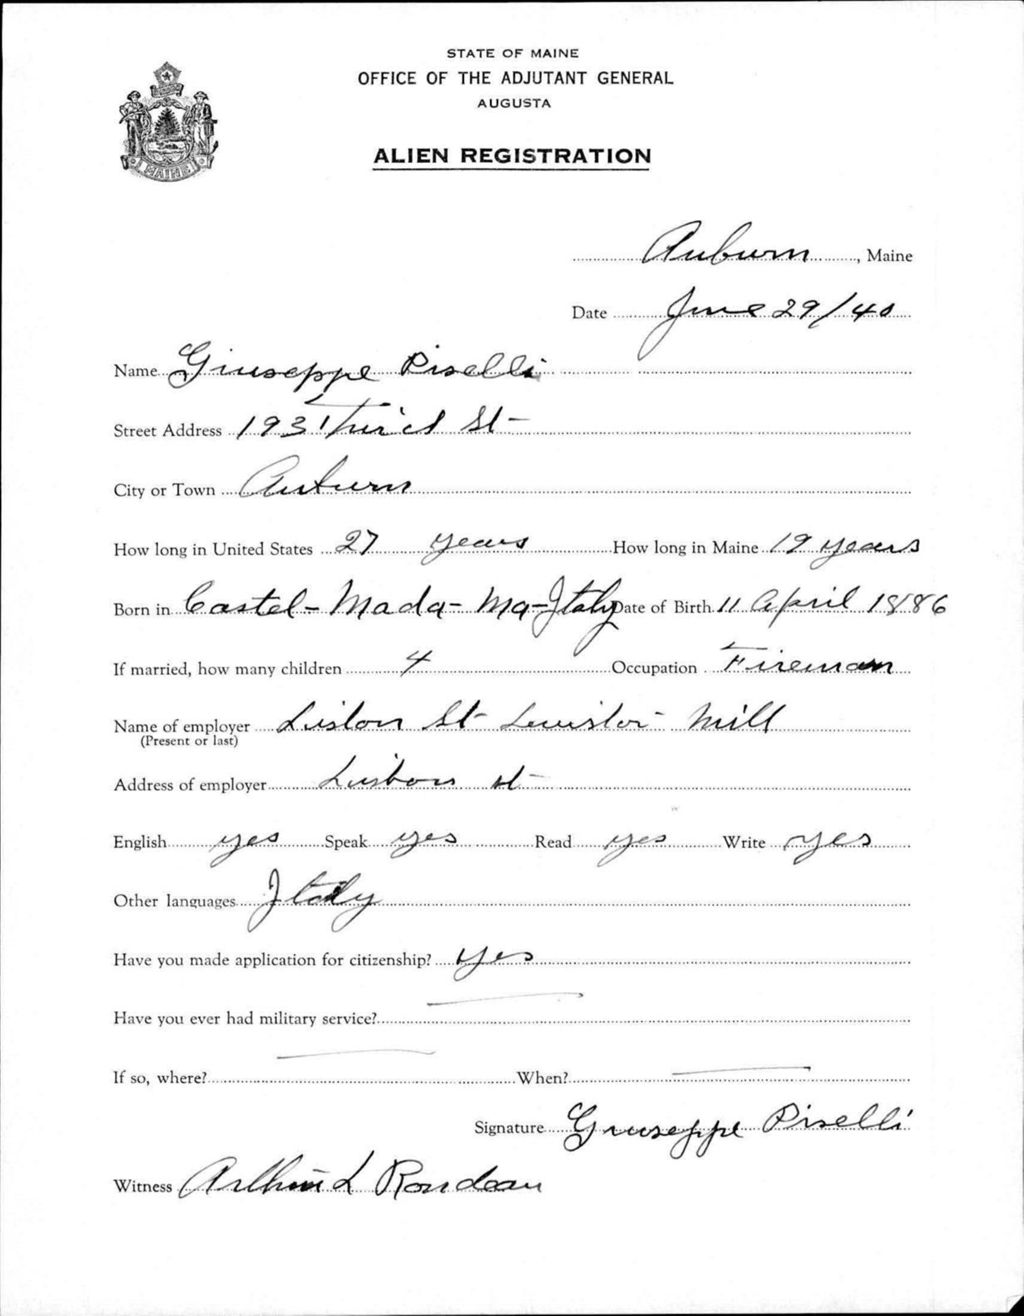 STATE OF MAINE
OFFICE OF THE ADJUTANT GENERAL
AUGUSTA
ALIEN REGISTRATION
MAINE
Auburn, Maine
Date June 29/40
Name Giuseppe Piselli
Street Address 193 Third St
City or Town Auburn
How long in United States 27 years How long in Maine 19 years
Born in Castel-Mada-Ma-Italy Date of Birth 11 April 1886
If married, how many children 4 Occupation Fireman
Name of employer Lisbon St Lewiston Mill
(Present or last)
Address of employer Lisbon st
English yes Speak yes Read yes Write yes
Other languages Italy
Have you made application for citizenship? yes
Have you ever had military service? —
If so, where? — When? —
Signature Giuseppe Piselli
Witness Arthur L Rondeau